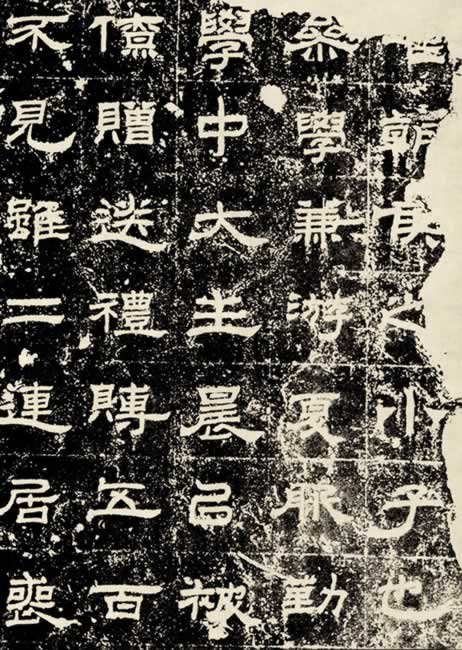 朝侯之小子也
叅學兼游夏服勤
學中大主晨㠯被
僚贈送禮賻五百
不見雖二連居喪